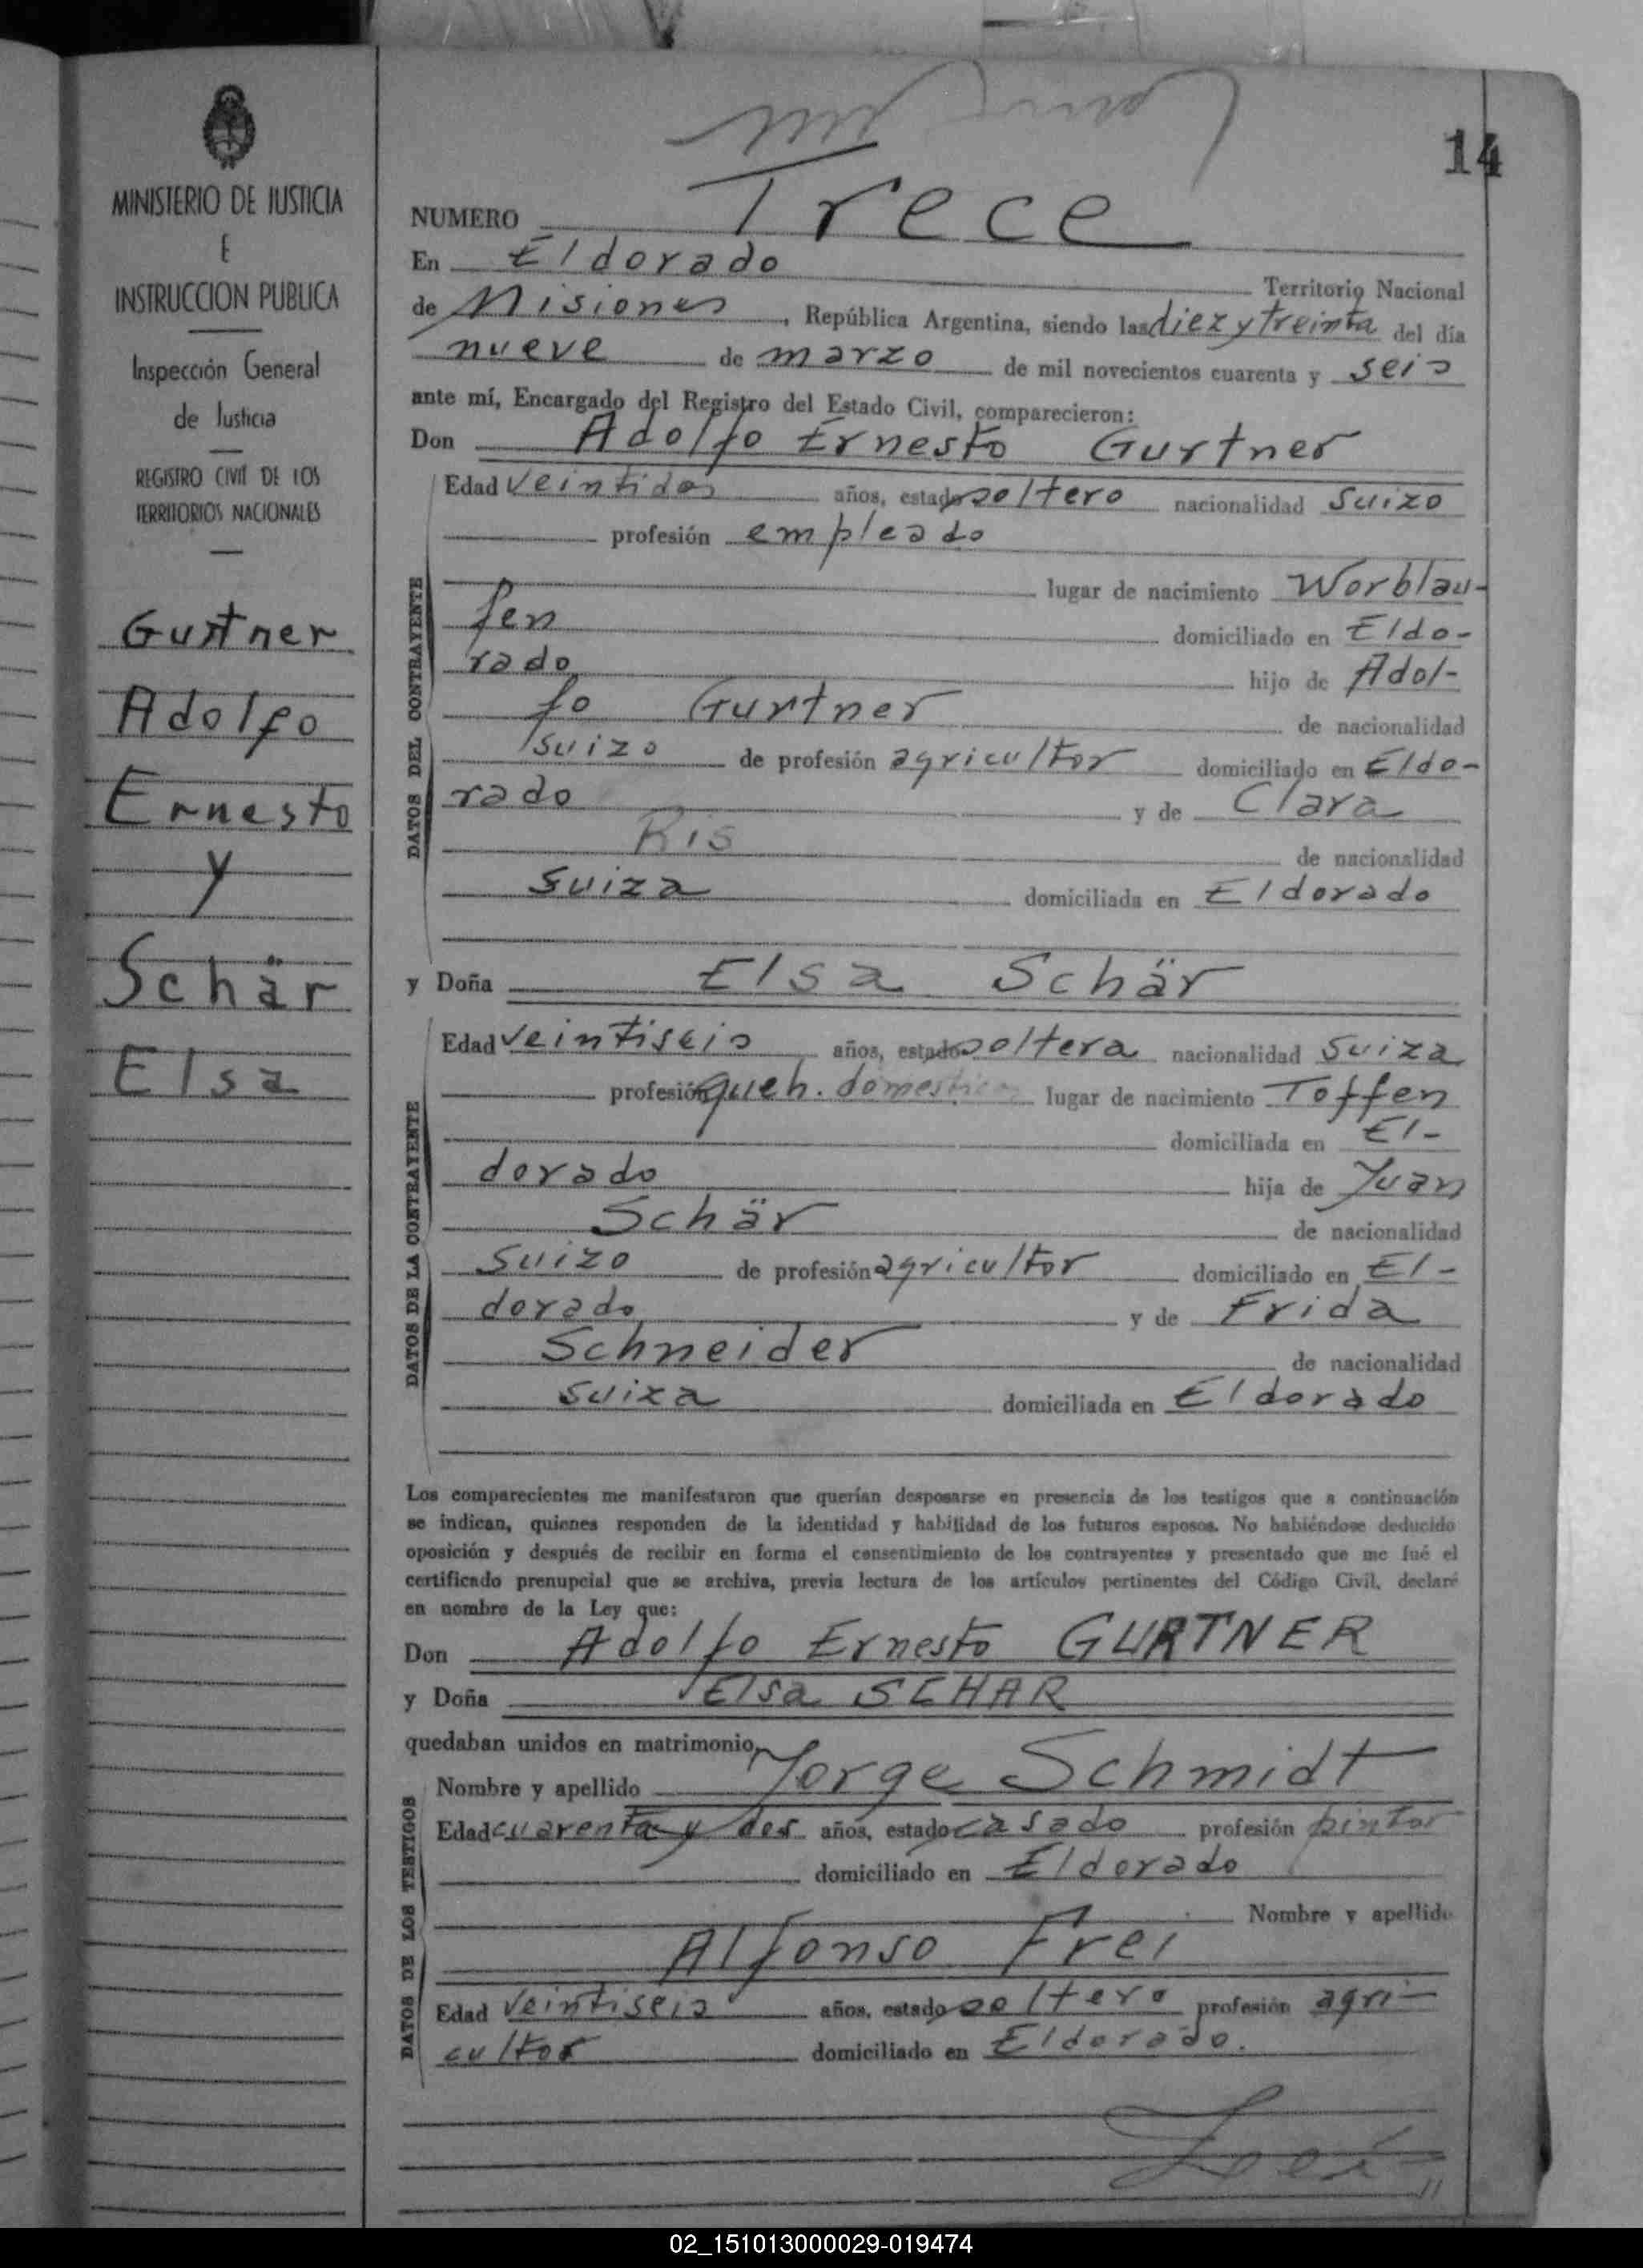 14
MINISTERIO DE JUSTICIA
E
INSTRUCCION PUBLICA
Inspección General
de Justicia
REGISTRO CIVIL DE LOS
TERRITORIOS NACIONALES
Gurtner
Adolfo
Ernesto
y
Schär
Elsa
NUMERO Trece
En Eldorado Territorio Nacional
de Misiones, República Argentina, siendo las diez y treinta del día
nueve de marzo de mil novecientos cuarenta y seis
ante mí, Encargado del Registro del Estado Civil, comparecieron:
Don Adolfo Ernesto Gurtner
DATOS DEL CONTRAYENTE
Edad veintidos años, estado soltero nacionalidad suizo
profesión empleado
lugar de nacimiento Worblau-
fen domiciliado en Eldo-
rado hijo de Adol-
fo Gurtner de nacionalidad
suizo de profesión agricultor domiciliado en Eldo-
rado y de Clara
Ris de nacionalidad
suiza domiciliada en Eldorado
y Doña Elsa Schär
DATOS DE LA CONTRAYENTE
Edad veintiseis años, estado soltera nacionalidad suiza
profesión queh. domestico lugar de nacimiento Toffen
domiciliada en El-
dorado hija de Juan
Schär de nacionalidad
suizo de profesión agricultor domiciliado en El-
dorado y de Frida
Schneider de nacionalidad
suiza domiciliada en Eldorado
Los comparecientes me manifestaron que querían desposarse en presencia de los testigos que a continuación
se indican, quienes responden de la identidad y habilidad de los futuros esposos. No habiéndose deducido
oposición y después de recibir en forma el consentimiento de los contrayentes y presentado que me fué el
certificado prenupcial que se archiva, previa lectura de los artículos pertinentes del Código Civil, declaré
en nombre de la Ley que:
Don Adolfo Ernesto GURTNER
y Doña Elsa SCHAR
quedaban unidos en matrimonio,
DATOS DE LOS TESTIGOS
Nombre y apellido Jorge Schmidt
Edad cuarenta y dos años, estado casado profesión pintor
domiciliado en Eldorado
Nombre y apellido
Alfonso Frei
Edad veintiseis años, estado soltero profesión agri-
cultor domiciliado en Eldorado.
02_151013000029-019474